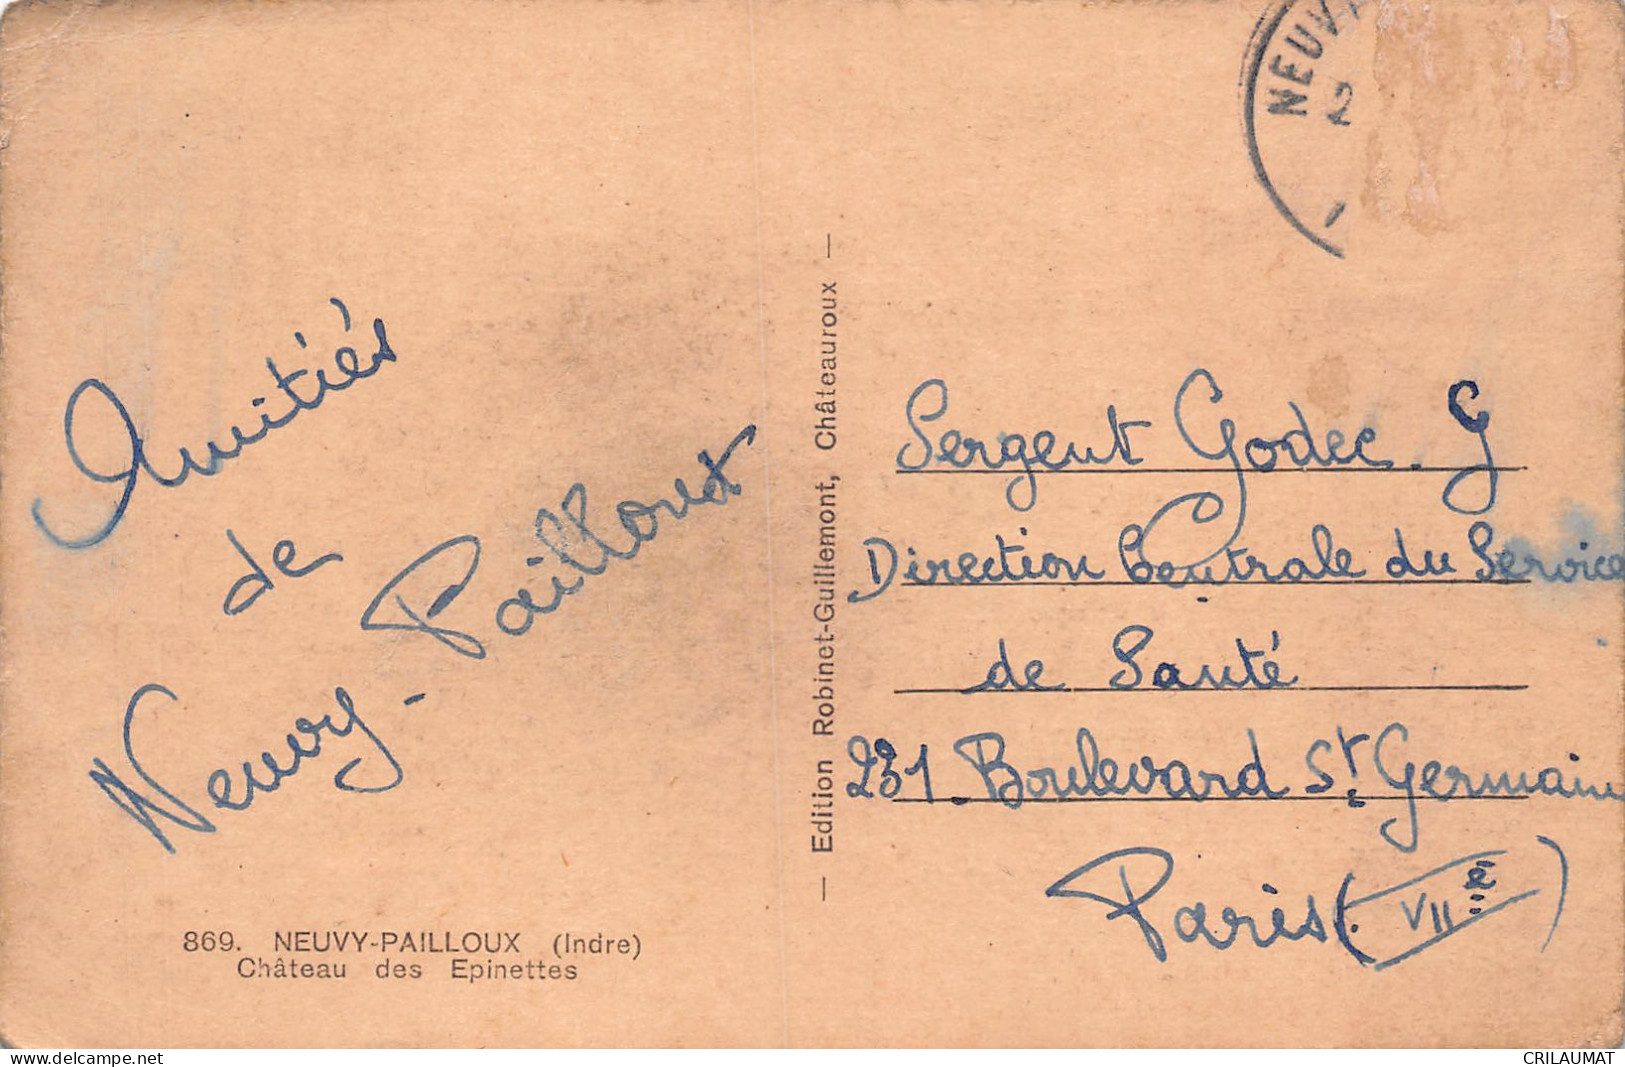 NEUVY
2
Amitiés
de
Neuvy-Pailloux
869. NEUVY-PAILLOUX (Indre)
Château des Epinettes
— Edition Robinet-Guillemont, Châteauroux —
Sergent Godec. G
Direction Centrale du Service
de Santé
231. Boulevard St. Germain
Paris (VIIè)
delcampe.net
CRILAUMAT